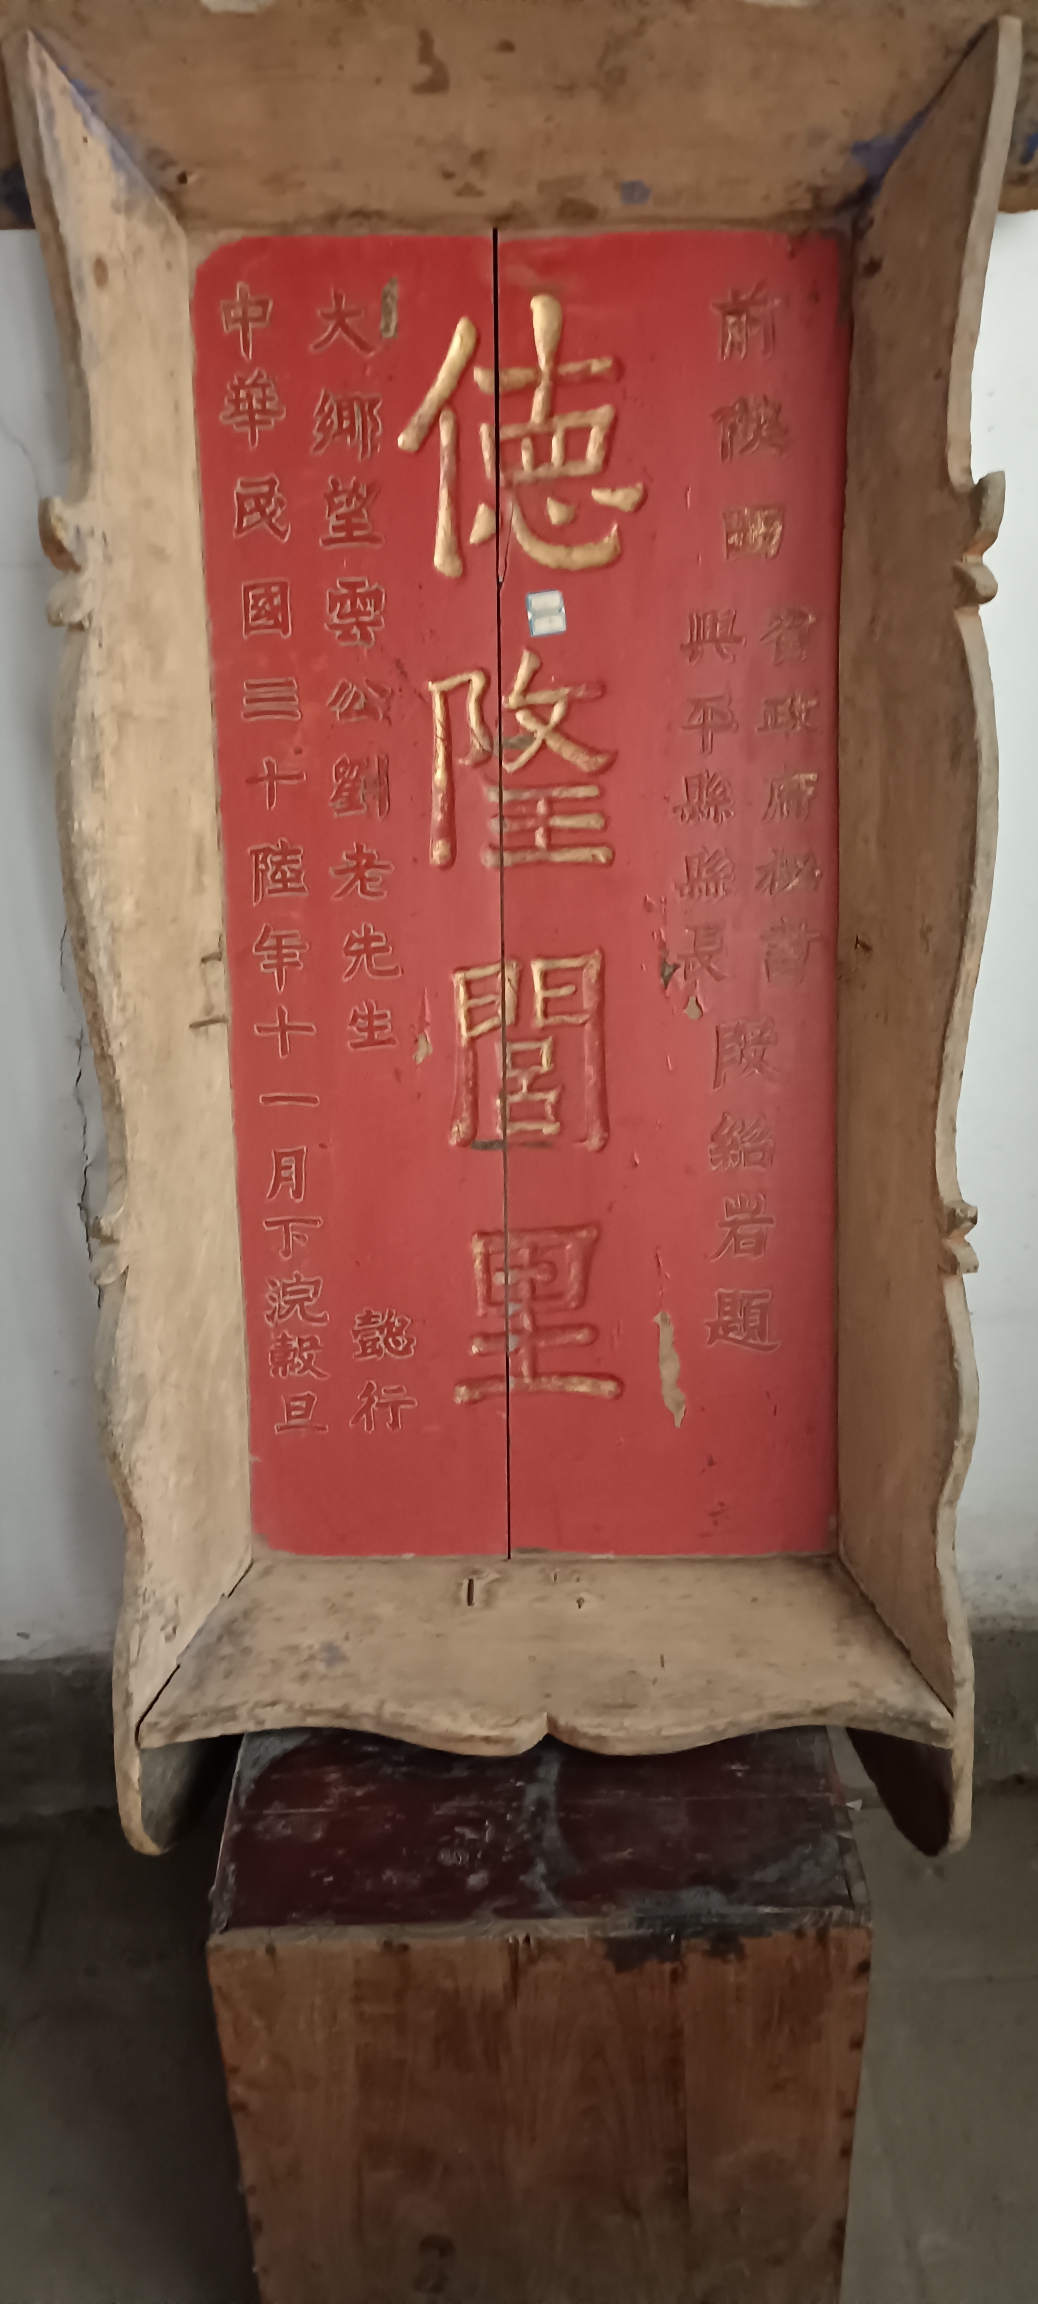 前陝西
省政府秘書
興平縣縣長
段紹岩題
德隆閭里
大鄉望雲公劉老先生 懿行
中華民國三十陸年十一月下浣穀旦